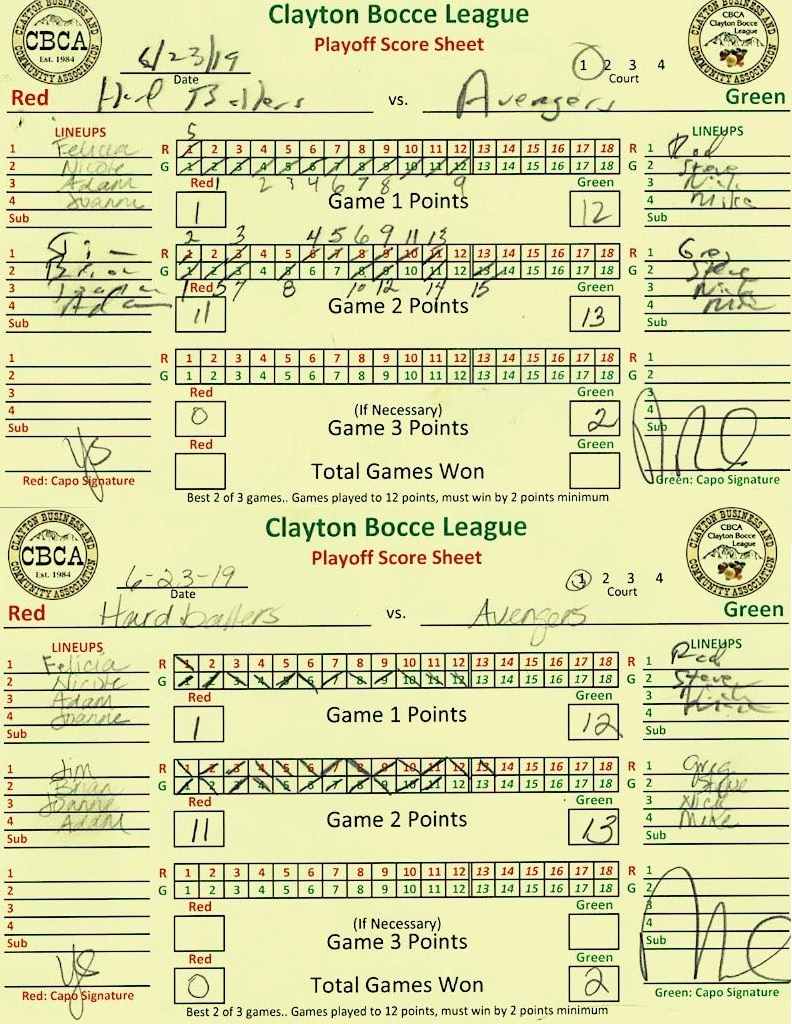 CLAYTON BUSINESS AND COMMUNITY ASSOCIATION
CBCA
Est. 1984
Clayton Bocce League
Playoff Score Sheet
CBCA
Clayton Bocce League
6/23/19
Date
1 2 3 4
Court
Red Hard Ballers vs. Avengers Green
LINEUPS
LINEUPS
1 Felicia R 1 2 3 4 5 6 7 8 9 10 11 12 13 14 15 16 17 18 R 1 Rod
2 Nicole G 1 2 3 4 5 6 7 8 9 10 11 12 13 14 15 16 17 18 G 2 Steve
3 Adam Red Green 3 Nick
4 Joanne 1 Game 1 Points 12 4 Mike
Sub Sub
5
1 2 3 4 6 7 8 9
2 3 4 5 6 9 11 13
1 Jim R 1 2 3 4 5 6 7 8 9 10 11 12 13 14 15 16 17 18 R 1 Greg
2 Brian G 1 2 3 4 5 6 7 8 9 10 11 12 13 14 15 16 17 18 G 2 Steve
1 5 7 8 10 12 14 15
3 Joanne Red Green 3 Nick
4 Adam 11 Game 2 Points 13 4 Mike
Sub Sub
1 R 1 2 3 4 5 6 7 8 9 10 11 12 13 14 15 16 17 18 R 1
2 G 1 2 3 4 5 6 7 8 9 10 11 12 13 14 15 16 17 18 G 2
3 Red Green 3
4 0 (If Necessary) 2 4
Sub Game 3 Points Sub
Red Green
Total Games Won
Red: Capo Signature Green: Capo Signature
Best 2 of 3 games.. Games played to 12 points, must win by 2 points minimum
CLAYTON BUSINESS AND COMMUNITY ASSOCIATION
CBCA
Est. 1984
Clayton Bocce League
Playoff Score Sheet
CBCA
Clayton Bocce League
6-23-19
Date
1 2 3 4
Court
Red Hardballers vs. Avengers Green
LINEUPS
LINEUPS
1 Felicia R 1 2 3 4 5 6 7 8 9 10 11 12 13 14 15 16 17 18 R 1 Rod
2 Nicole G 1 2 3 4 5 6 7 8 9 10 11 12 13 14 15 16 17 18 G 2 Steve
3 Adam Red Green 3 Nick
4 Joanne 1 Game 1 Points 12 4
Sub Sub
1 Jim R 1 2 3 4 5 6 7 8 9 10 11 12 13 14 15 16 17 18 R 1 Greg
2 Brian G 1 2 3 4 5 6 7 8 9 10 11 12 13 14 15 16 17 18 G 2 Steve
3 Joanne Red Green 3 Nick
4 Adam 11 Game 2 Points 13 4 Mike
Sub Sub
1 R 1 2 3 4 5 6 7 8 9 10 11 12 13 14 15 16 17 18 R 1
2 G 1 2 3 4 5 6 7 8 9 10 11 12 13 14 15 16 17 18 G 2
3 Red Green 3
4 (If Necessary) 4
Sub Game 3 Points Sub
Red Green
0 Total Games Won 2
Red: Capo Signature Green: Capo Signature
Best 2 of 3 games.. Games played to 12 points, must win by 2 points minimum